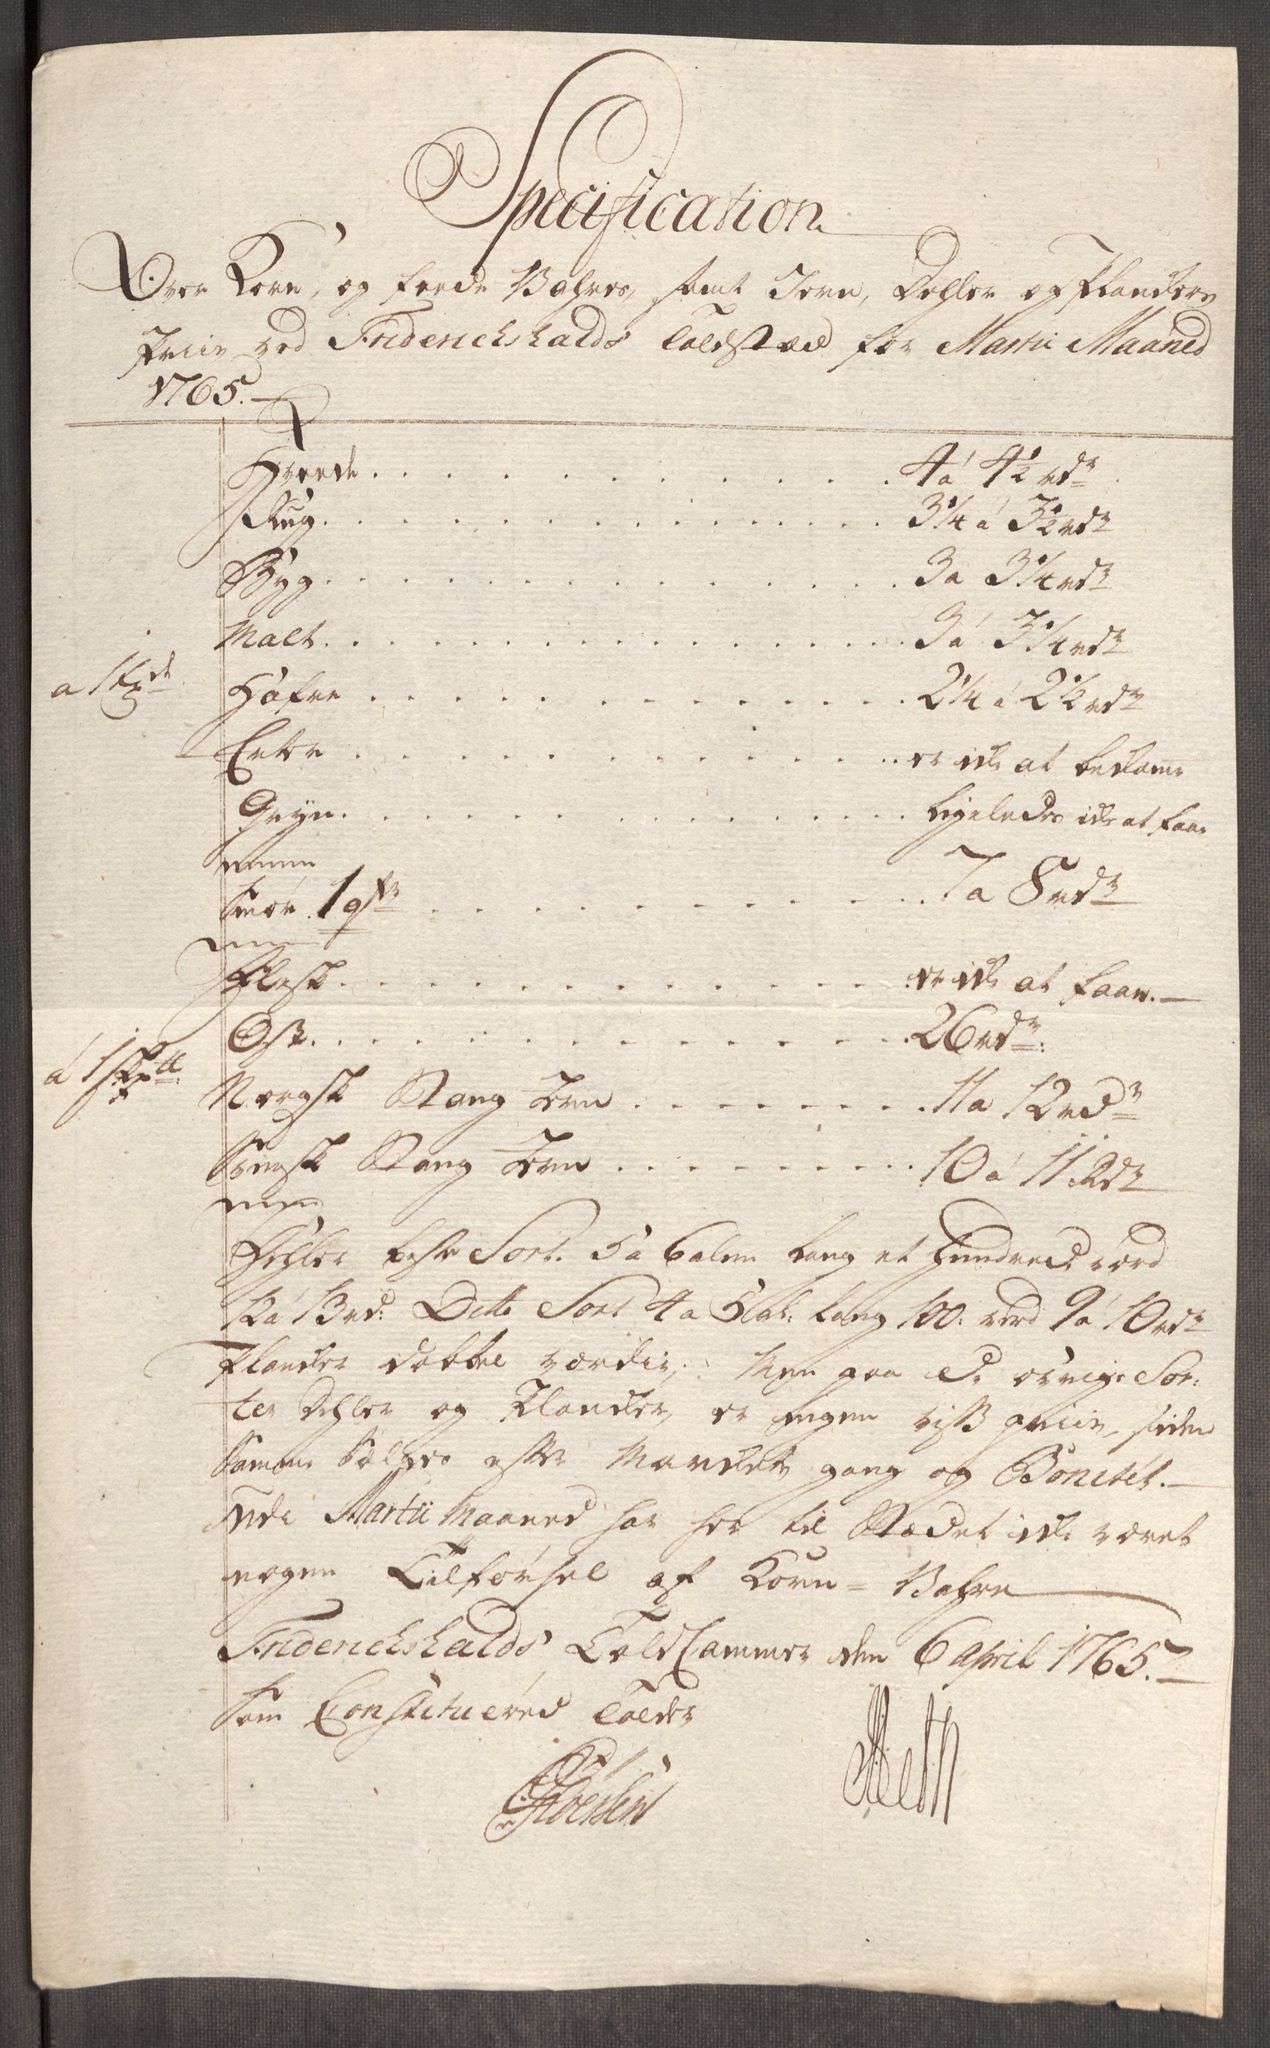 Specification
Over Korn, og feede Vahres, samt Jern, Dehler og Planckers
Priis ved Friderichshalds Toldsted for Martii Maaned
1765.
Hvede . . . 4 á 4½ rdr
Rug . . . 3¼ á 3½ rdr
Byg . . . 3 a 3¼ rdr
Malt . . . 3 á 3¼ rdr
a 1 Tde
Hafre . . . 2¼ á 2½ rdr
Erter . . . er icke at bekome
Gryn . . . ligeledes icke at faae
Smør 1 qr . . . 7 a 8 rdr
Flesk . . . er icke at faae.
Ost . . . 26 rdr
á 1 Sk℔
Norsk Stang Jern . . . 11 a 12 rdr
Svensk Stang Jern . . . 10 á 11 Rdr
Dehler beste Sort. 5 á 6 alen lang et Hundrede værd
12 á 13 rd: Ditto Sort 4 a 5 al: lang 100: værd 9 á 10 rdr
Plancker dobbel værdie; Men paa de øvrige Sor-
ter Dehler og Plancker, er ingen viss priis, siden
samme sælges efter Markets gang og Bonitet.
Udi Martii Maaned har her til Stædet icke været
nogen Tilførsel af Korn-Vahre
Friderichshalds Told Cammer den 6 April 1765.
Som Constituered Tolder